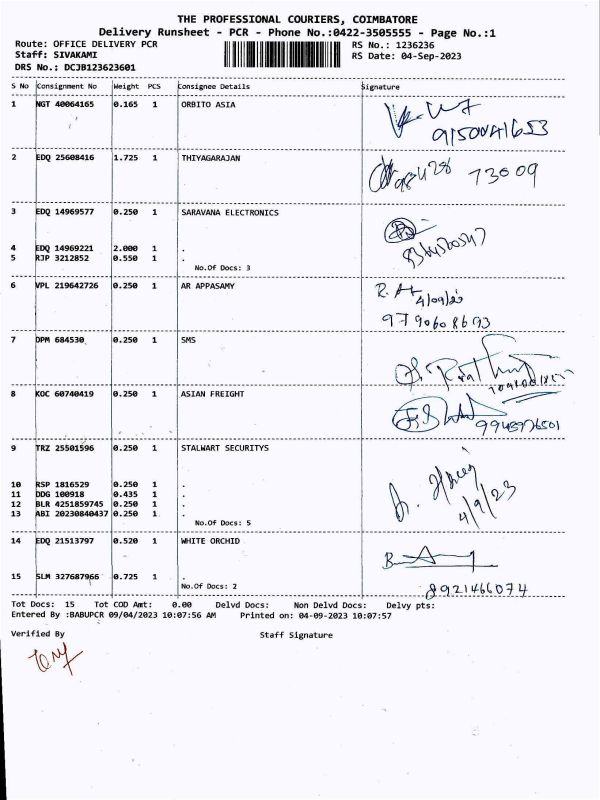 THE PROFESSIONAL COURIERS, COIMBATORE
Delivery Runsheet - PCR - Phone No.:0422-3505555 - Page No.:1
Route: OFFICE DELIVERY PCR RS No.: 1236236
Staff: SIVAKAMI RS Date: 04-Sep-2023
DRS No.: DCJB123623601
S No Consignment No Weight PCS Consignee Details Signature
1 NGT 40064165 0.165 1 ORBITO ASIA
2 EDQ 25608416 1.725 1 THIYAGARAJAN
73009
3 EDQ 14969577 0.250 1 SARAVANA ELECTRONICS
4 EDQ 14969221 2.000 1 .
5 RJP 3212852 0.550 1 .
No.Of Docs: 3
6 VPL 219642726 0.250 1 AR APPASAMY
4/09/23
9790608693
7 DPM 684530 0.250 1 SMS
8 KOC 60740419 0.250 1 ASIAN FREIGHT
9945976501
9 TRZ 25501596 0.250 1 STALWART SECURITYS
10 RSP 1816529 0.250 1 .
11 DDG 100918 0.435 1 .
12 BLR 4251859745 0.250 1 .
13 ABI 20230840437 0.250 1 .
4/9/23
No.Of Docs: 5
14 EDQ 21513797 0.520 1 WHITE ORCHID
15 SLM 327687966 0.725 1 .
No.Of Docs: 2
8921466074
Tot Docs: 15 Tot COD Amt: 0.00 Delvd Docs: Non Delvd Docs: Delvy pts:
Entered By :BABUPCR 09/04/2023 10:07:56 AM Printed on: 04-09-2023 10:07:57
Verified By Staff Signature